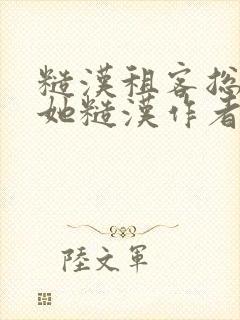 糙漢租客总
她糙漢作者
陸文軍